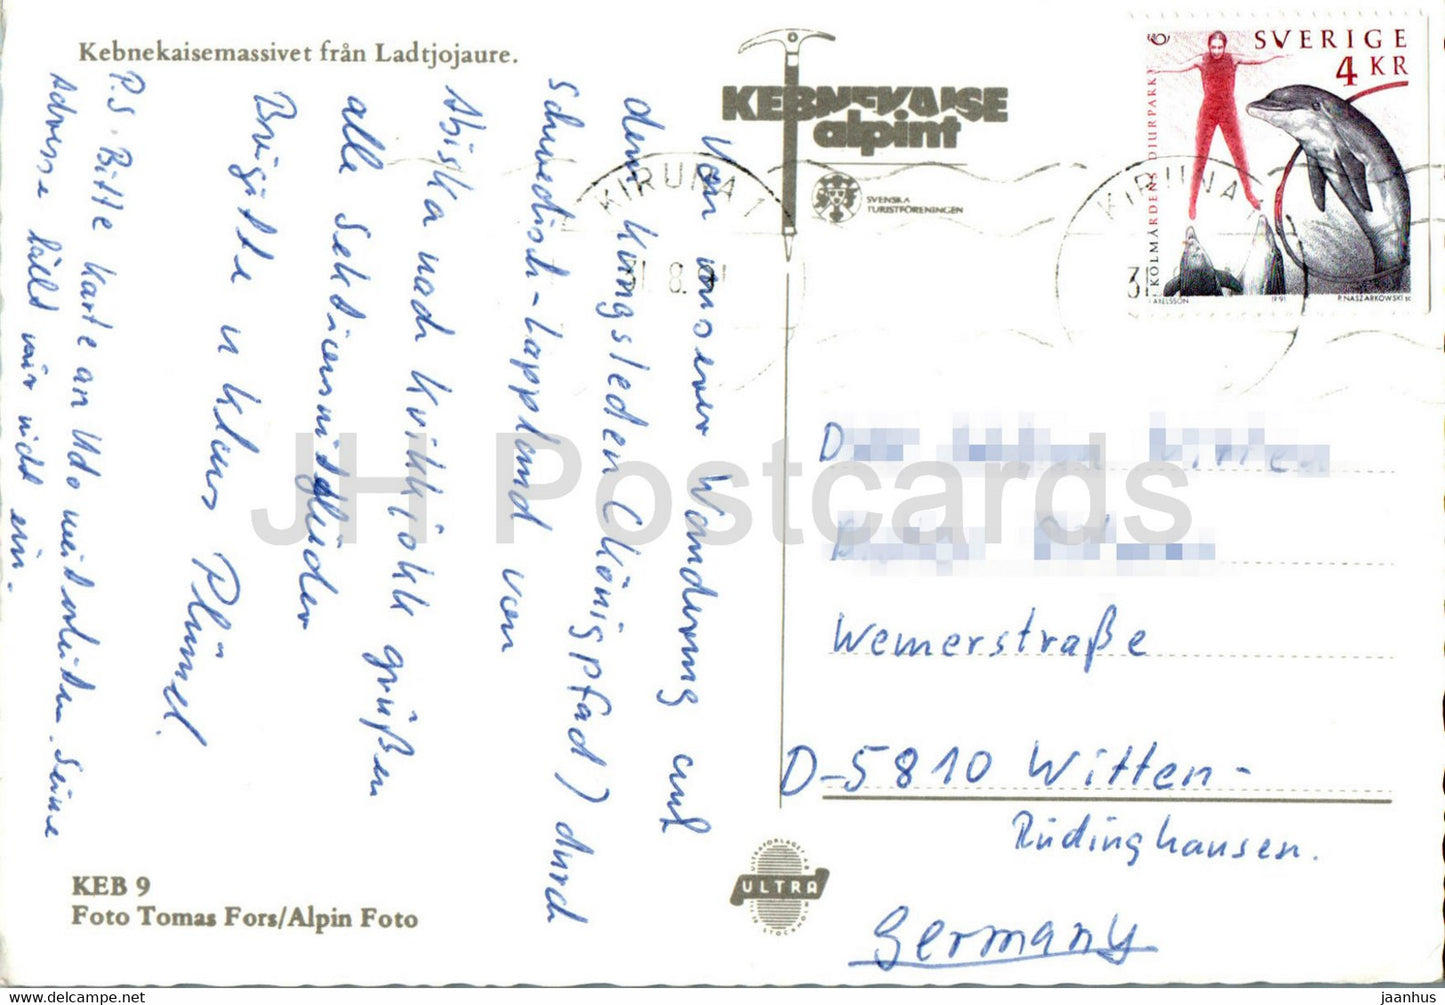 Kebnekaisemassivet från Ladtjojaure.
KEBNEKAISE
alpint
SVENSKA
TURISTFÖRENINGEN
SVERIGE
4 KR
KOLMÅRDENS DJURPARK
AXELSSON
1991
P. NASZARKOWSKI sc
KIRUNA 1
31.8.91
KIRUNA
31
Von unserer Wanderung auf
dem Kungsleden (Königspfad) durch
Schwedisch-Lappland von
Abiska nach Kvikkjokk grüßen
alle Sektionsmitglieder
Brigitte u Klaus Plümel.
P.S. Bitte Karte an Udo weiterleiten. Seine
Adresse fällt mir nicht ein.
Wemerstraße
D-5810 Witten-
Rüdinghausen.
Germany
KEB 9
Foto Tomas Fors/Alpin Foto
ULTRAFÖRLAGET AB
ULTRA
STOCKHOLM
JH Postcards
HipPostcard.com
jaanhus